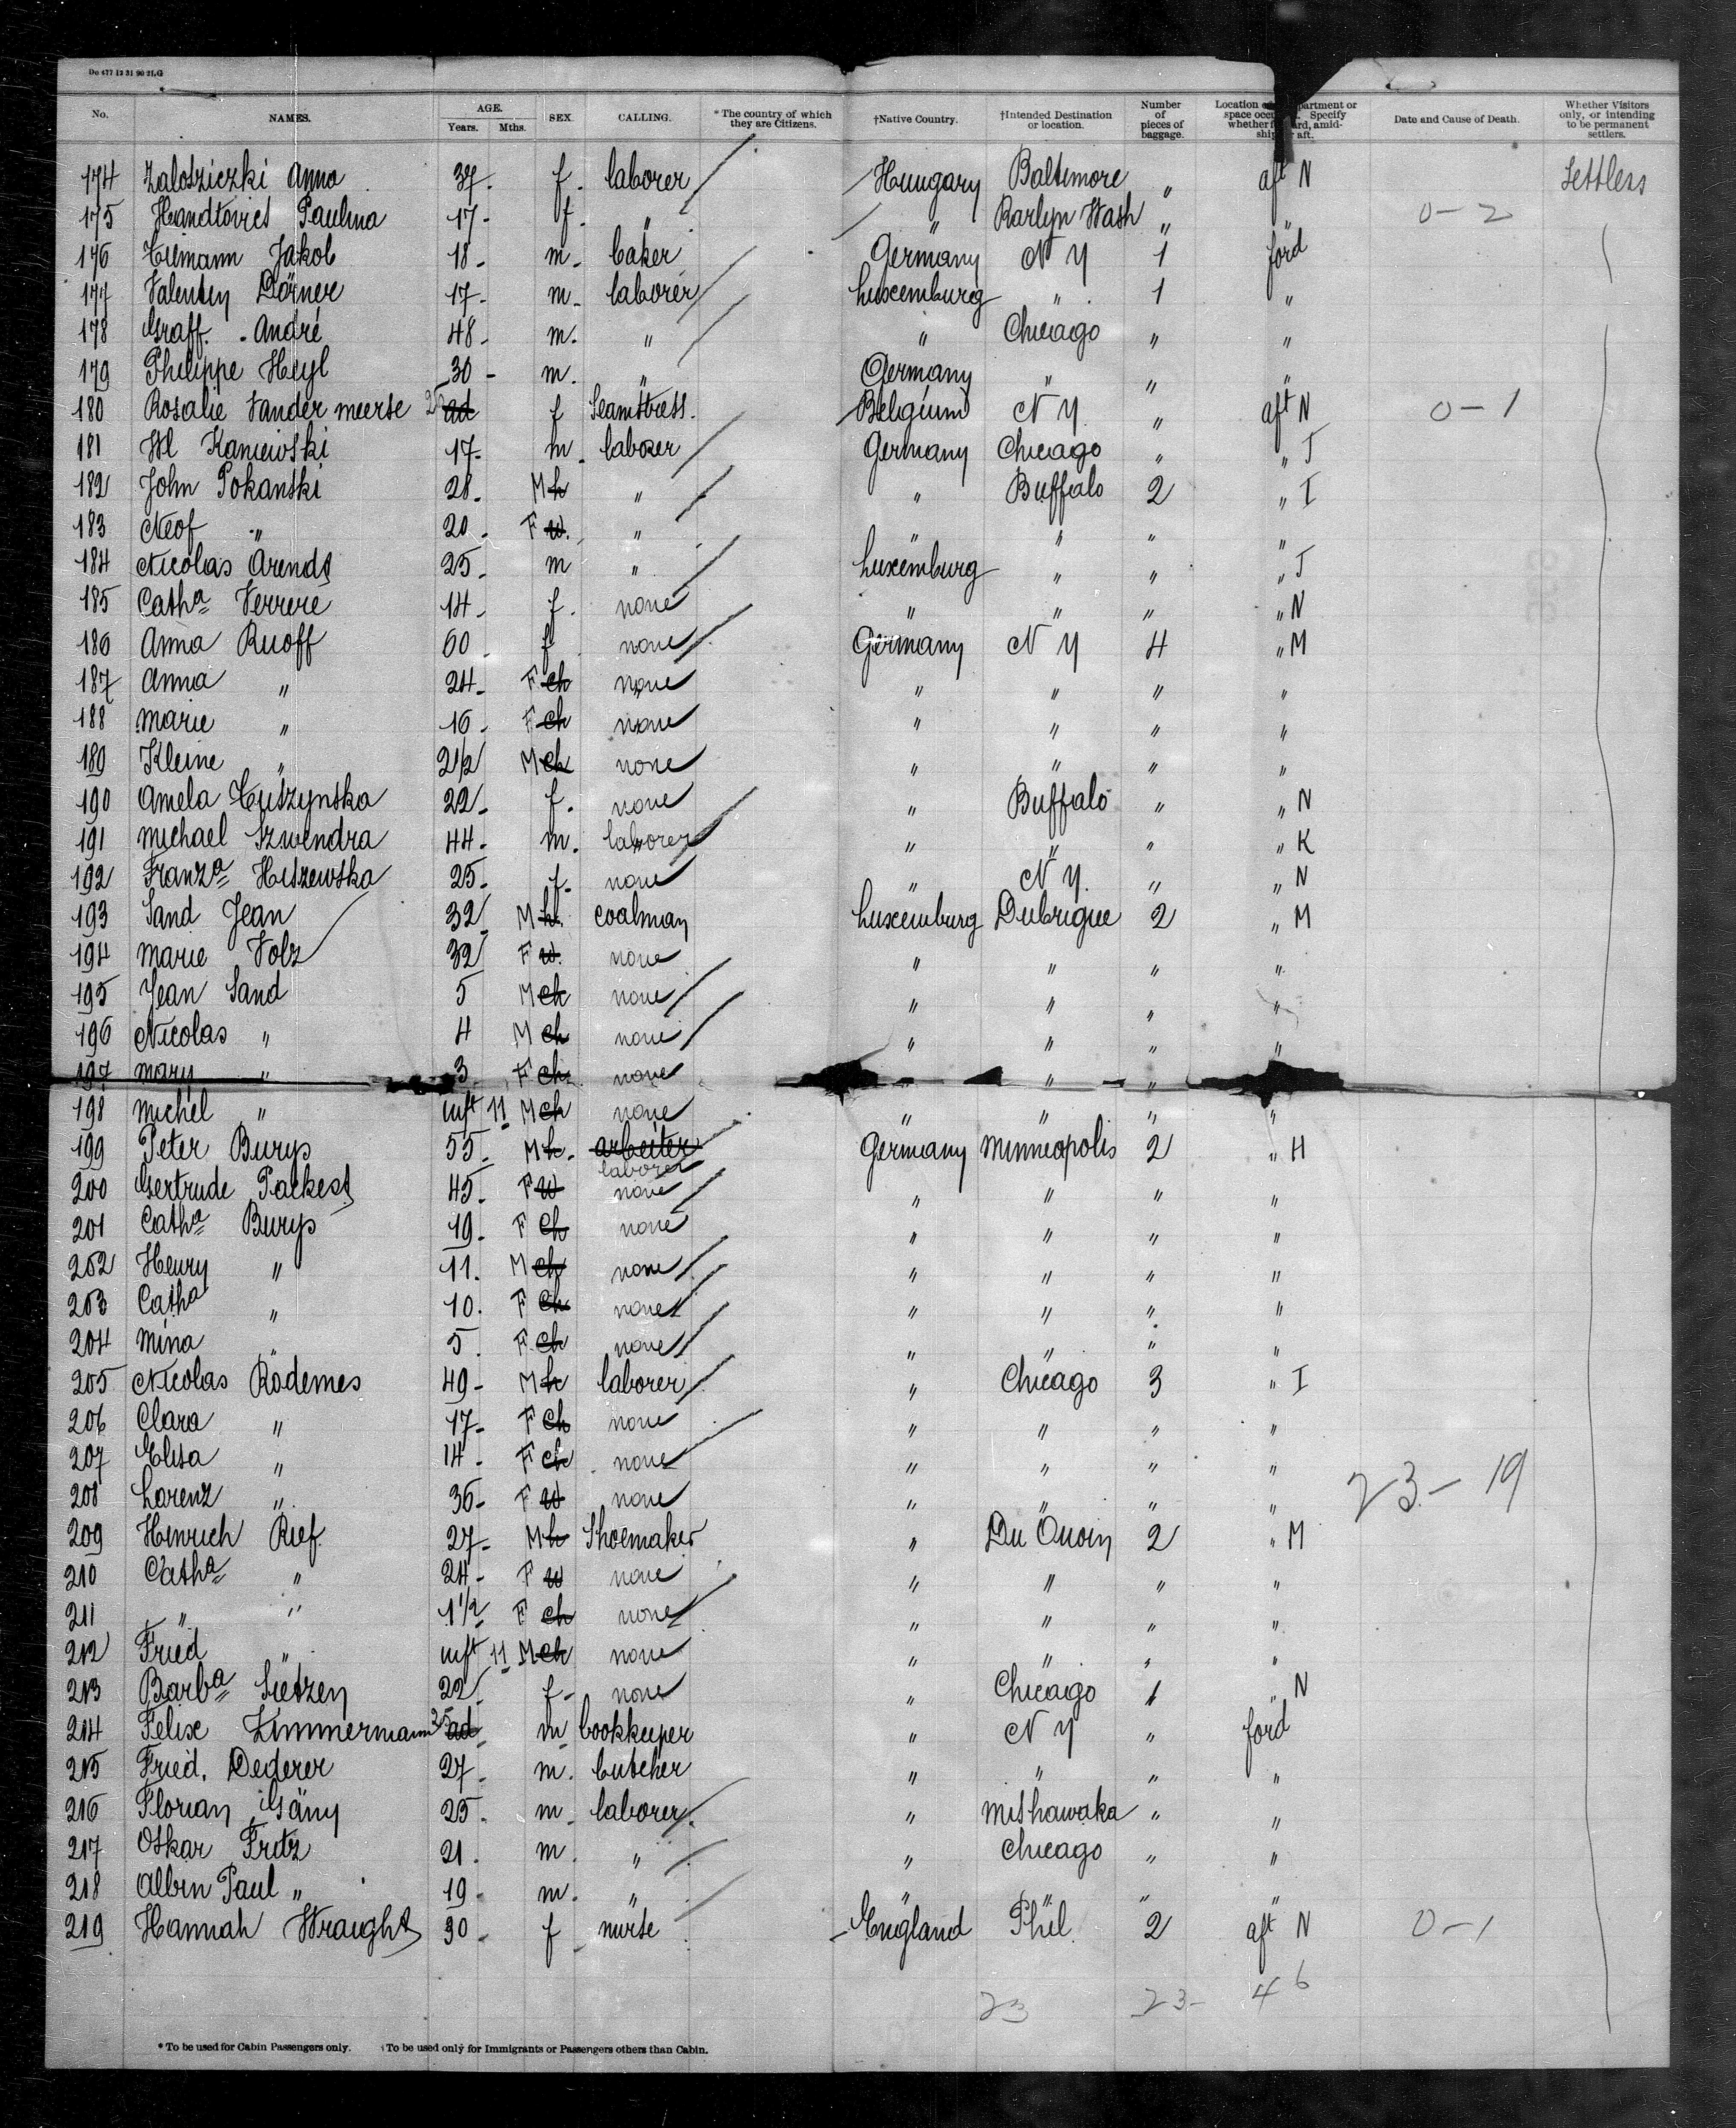 Do 477 12 31 90 2L.G
No. NAMES. AGE. Years. Mths. SEX. CALLING. * The country of which they are Citizens. †Native Country. †Intended Destination or location. Number of pieces of baggage. Location partment or space occu Specify whether f ard, amid- ship r aft. Date and Cause of Death. Whether Visitors only, or intending to be permanent settlers.
174 Zalosziczki Anna 37. f. laborer Hungary Baltimore " aft N Settlers
175 Handtovics Paulina 17- f. " " Wash " " 0-2
176 Jakob 18- m. baker Germany N Y 1 ford
177 Valentin Dörner 17- m. laborer Luxemburg " 1 "
178 Graff. André 48- m. " " Chicago " "
179 Philippe Heyl 30- m. " Germany " " "
180 Rosalie Vander meerse 25 ad f Seamstress. Belgium N Y. " aft N 0-1
181 Wl Kaniewski 17- m laborer Germany Chicago " " J
182 John Pokanski 28. M h " " Buffalo 2 " I
183 " 20. F w. " " " " "
184 Nicolas Arends 25- m " Luxemburg " " " J
185 Catha Verrere 14- f. none " " " " N
186 Anna Ruoff 60 f none Germany N Y 4 " M
187 Anna " 24- F ch none " " " "
188 Marie " 16- F ch none " " " "
189 Kleine " 2 1/2 M ch none " " " "
190 Amela Cuszynska 22- f. none " Buffalo " " N
191 Michael Szwendra 44- m. laborer " " " " K
192 Franza Hiszewska 25- f. none " N Y. " " N
193 Sand Jean 32 M h. coalman Luxemburg Dubrique 2 " M
194 Marie Volz 32 F w. none " " " "
195 Jean Sand 5 M ch none " " " "
196 Nicolas " 4 M ch none " " " "
197 Mary " 3 F ch none " "
198 Michel " inft 11 M ch none " " " "
199 Peter Burys 55. M h. arbeiter Germany Minneopolis 2 " H
laborer
200 Gertrude Packest 45. F w none " " " "
201 Catha Burys 19. F ch none " " " "
202 Henry " 11. M ch none " " " "
203 Catha " 10. F ch none " " " "
204 Mina " 5. F ch none " " " "
205 Nicolas Rodemes 49- M h laborer " Chicago 3 " I
206 Clara " 17- F ch none " " " "
207 Elisa " 14- F ch none " " " " 23-19
208 Lorenz " 36- F w none " " " "
209 Hinrich Rief. 27- M h Shoemaker " Du Quoin 2 " M
210 Catha " 24- F w none " " " "
211 " " 1 1/2 F ch none " " " "
212 Fried " inft 11 M ch none " " " "
213 Barba Sietzen 22 f- none " Chicago 1 " N
214 Felix Zimmermann 35 ad m bookkeeper " N Y " ford
215 Fried. Dederer 27- m. butcher " " " "
216 Florian Gäny 25. m. laborer " Mishawaka " "
217 Oskar Fritz 21. m. " " Chicago " "
218 Albin Paul " 19- m. " " " " "
219 Hannah Wraight 30- f nurse England Phil. 2 aft N 0-1
23 23- 46
* To be used for Cabin Passengers only. †To be used only for Immigrants or Passengers others than Cabin.